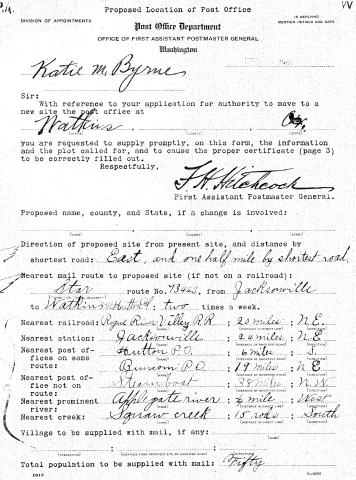 Proposed Location of Post Office
DIVISION OF APPOINTMENTS
IN REPLYING
MENTION INITIALS AND DATE
Post Office Department
OFFICE OF FIRST ASSISTANT POSTMASTER GENERAL
Washington
Katie M. Byrne
Sir:
With reference to your application for authority to move to a
new site the post office at
Watkins
(STATE)
you are requested to supply promptly, on this form, the information
and the plot called for, and to cause the proper certificate (page 3)
to be correctly filled out.
Respectfully,
F. H. Hitchcock
First Assistant Postmaster General.
Proposed name, county, and State, if a change is involved:
Direction of proposed site from present site, and distance by
shortest road: East, and one half mile by shortest road,
Nearest mail route to proposed site (if not on a railroad):
Star route No. 73425, from Jacksonville
to Watkins two times a week.
Nearest railroad: Rogue River Valley R.R. : 20 miles : N.E.
Nearest station: Jacksonville : 24 miles : N.E.
Nearest post offices on same route: Hutton P.O. : 6 miles : S.
Buncom P.O. : 19 miles : N E
Nearest post office not on route: Steamboat : 38 miles : N.W.
Nearest prominent river: Applegate river : mile : West
Nearest creek: Squaw creek : 15 rods : South
Village to be supplied with mail, if any:
Total population to be supplied with mail: Fifty